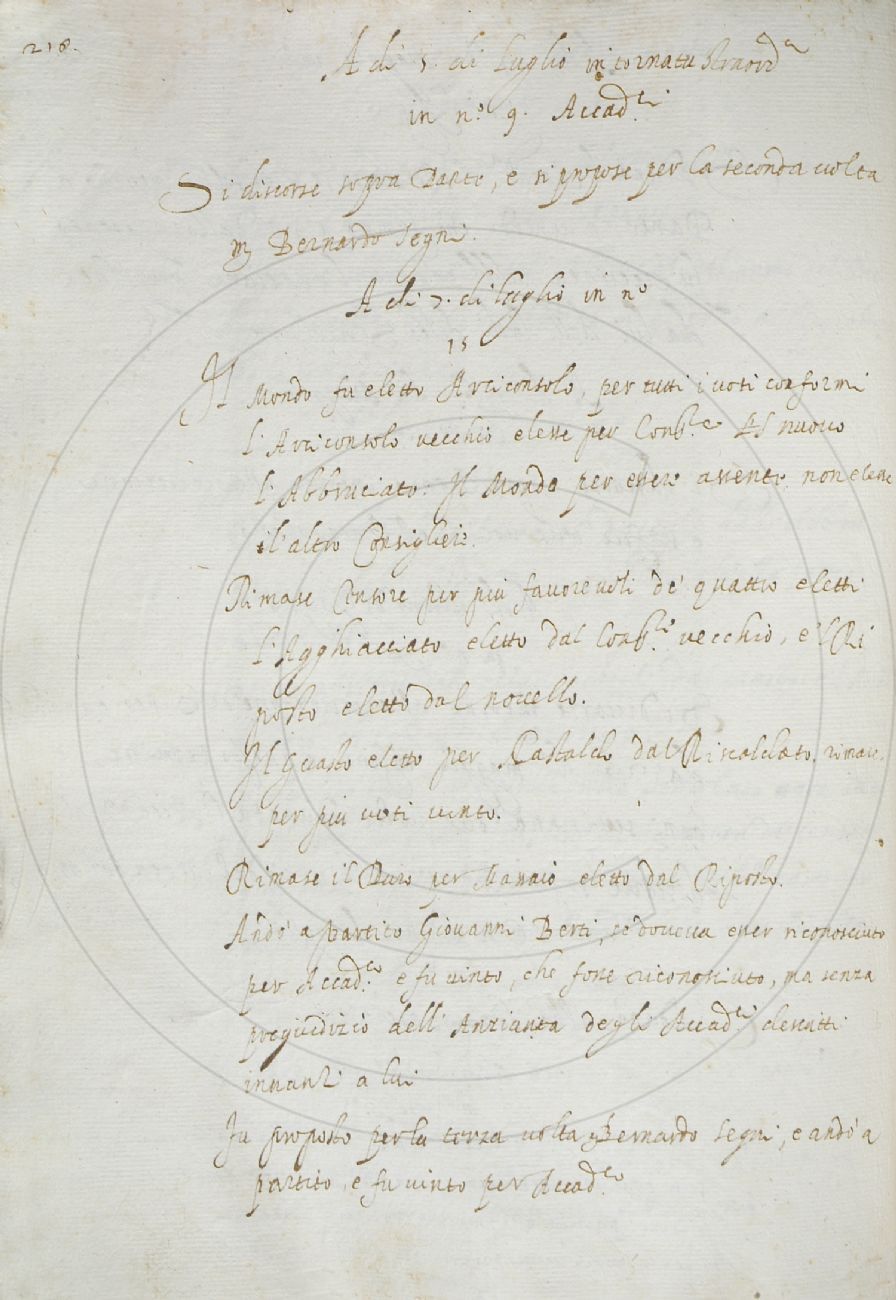 218.
A di 5. di Luglio in tornata straord.a
in n.o 9. Accad.ci
Si discorse sopra Dante, e si propose per la seconda uolta
Bernardo Segni.
A di 7. di Luglio in n.o
15
Il Mondo fu eletto Arciconsolo, per tutti i uoti conformi
l'Arciconsolo uecchio elesse per Cons.re del nuouo
l'Abbruciato. Il Mondo per essere assente non elesse
l'altro Consigliere.
Rimase Censore per più fauoreuoli de' quattro eletti
l'Agghiacciato eletto dal Cons.re uecchio, e'l Ri
posto eletto dal nouello.
Il Guasto eletto per Castaldo dal Riscaldato, rimase
per più uoti uinto.
Rimase il Duro per Massaio eletto dal Riposto.
Andò a partito Giouanni Berti, ce doueua esser riconosciuto
per Accad.co e fu uinto, che fosse riconosciuto, ma senza
pregiudizio dell'Anzianta degli Accad.ci descritti
innanzi a lui
Fu proposto per la terza uolta Bernardo Segni, e andò a
partito, e fu uinto per Accad.co